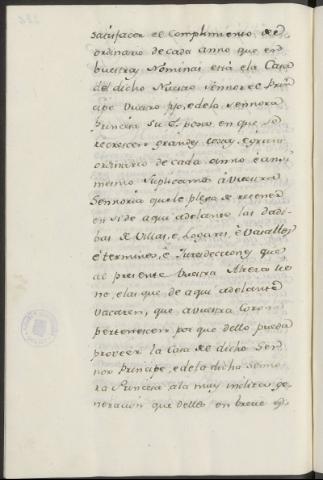 satisfacer el complimiento, de el
ordinario de cada anno que en
vuestras Nominas está e la Casa
del dicho Nuestro Sennor el Prin
cipe vuestro fijo, e de la sennora
Princesa su Esposa, en que se
recrescen grandes cosas, e gran
ordinario de cada anno e ansi
mesmo Suplicamos á vuestra
Sennoria que le plega de retener
en si de aqui adelante las dadi
bas de Villas, e Logares, e Vasallos
e terminos, e Juredeciones que
al presente Vuestra Alteza tie
ne, e las que de aqui adelante
vacaren, que a vuestra Coron
pertenescen por que dello pueda
proveer la Casa de el dicho Sen
nor Principe, e de la dicha Senno
ra Princesa, a la muy inclita ge
neracion que dellos en breve es